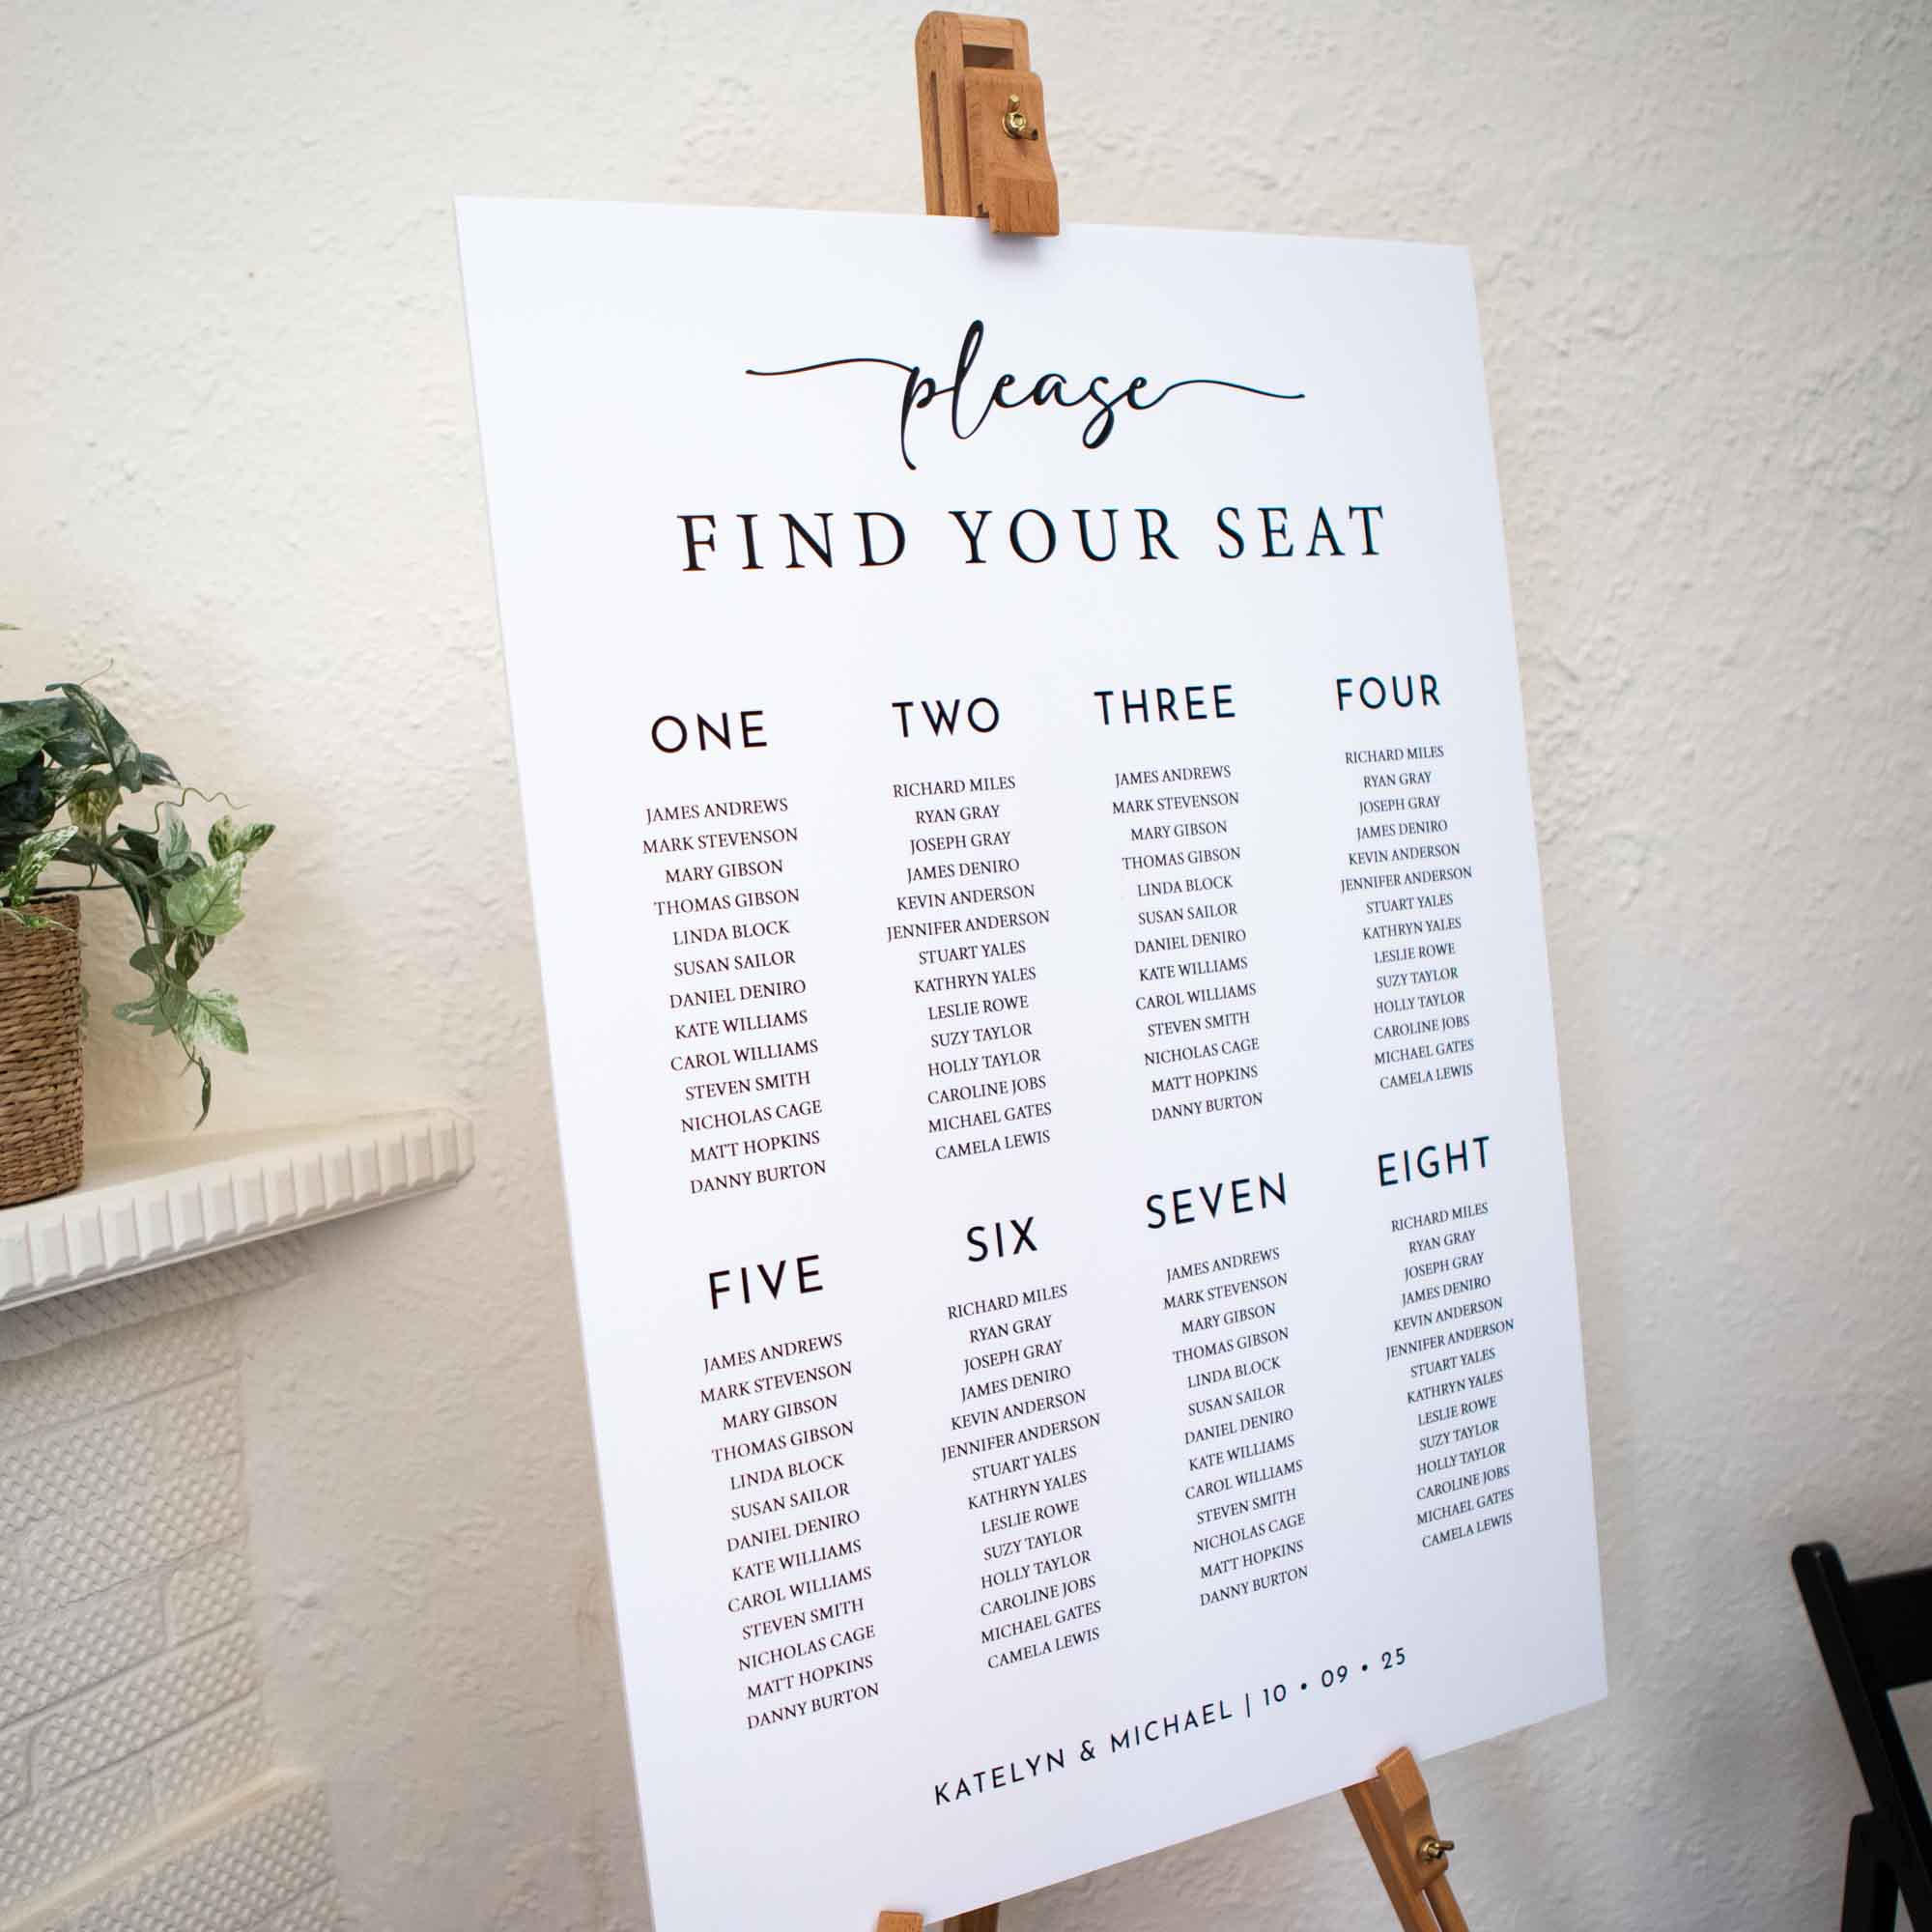 please
FIND YOUR SEAT
ONE
JAMES ANDREWS
MARK STEVENSON
MARY GIBSON
THOMAS GIBSON
LINDA BLOCK
SUSAN SAILOR
DANIEL DENIRO
KATE WILLIAMS
CAROL WILLIAMS
STEVEN SMITH
NICHOLAS CAGE
MATT HOPKINS
DANNY BURTON
TWO
RICHARD MILES
RYAN GRAY
JOSEPH GRAY
JAMES DENIRO
KEVIN ANDERSON
JENNIFER ANDERSON
STUART YALES
KATHRYN YALES
LESLIE ROWE
SUZY TAYLOR
HOLLY TAYLOR
CAROLINE JOBS
MICHAEL GATES
CAMELA LEWIS
THREE
JAMES ANDREWS
MARK STEVENSON
MARY GIBSON
THOMAS GIBSON
LINDA BLOCK
SUSAN SAILOR
DANIEL DENIRO
KATE WILLIAMS
CAROL WILLIAMS
STEVEN SMITH
NICHOLAS CAGE
MATT HOPKINS
DANNY BURTON
FOUR
RICHARD MILES
RYAN GRAY
JOSEPH GRAY
JAMES DENIRO
KEVIN ANDERSON
JENNIFER ANDERSON
STUART YALES
KATHRYN YALES
LESLIE ROWE
SUZY TAYLOR
HOLLY TAYLOR
CAROLINE JOBS
MICHAEL GATES
CAMELA LEWIS
FIVE
JAMES ANDREWS
MARK STEVENSON
MARY GIBSON
THOMAS GIBSON
LINDA BLOCK
SUSAN SAILOR
DANIEL DENIRO
KATE WILLIAMS
CAROL WILLIAMS
STEVEN SMITH
NICHOLAS CAGE
MATT HOPKINS
DANNY BURTON
SIX
RICHARD MILES
RYAN GRAY
JOSEPH GRAY
JAMES DENIRO
KEVIN ANDERSON
JENNIFER ANDERSON
STUART YALES
KATHRYN YALES
LESLIE ROWE
SUZY TAYLOR
HOLLY TAYLOR
CAROLINE JOBS
MICHAEL GATES
CAMELA LEWIS
SEVEN
JAMES ANDREWS
MARK STEVENSON
MARY GIBSON
THOMAS GIBSON
LINDA BLOCK
SUSAN SAILOR
DANIEL DENIRO
KATE WILLIAMS
CAROL WILLIAMS
STEVEN SMITH
NICHOLAS CAGE
MATT HOPKINS
DANNY BURTON
EIGHT
RICHARD MILES
RYAN GRAY
JOSEPH GRAY
JAMES DENIRO
KEVIN ANDERSON
JENNIFER ANDERSON
STUART YALES
KATHRYN YALES
LESLIE ROWE
SUZY TAYLOR
HOLLY TAYLOR
CAROLINE JOBS
MICHAEL GATES
CAMELA LEWIS
KATELYN & MICHAEL | 10 • 09 • 25